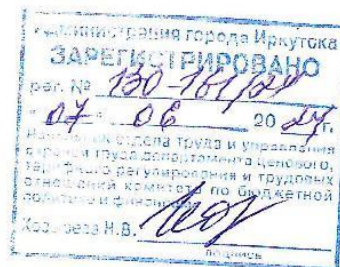 Администрация города Иркутска
ЗАРЕГИСТРИРОВАНО
рег. № 130-161/24
" 07 " 06 2024 г.
Начальник отдела труда и управления
охраной труда департамента ценового,
тарифного регулирования и трудовых
отношений комитета по бюджетной
политике и финансам
Н.В.
подпись